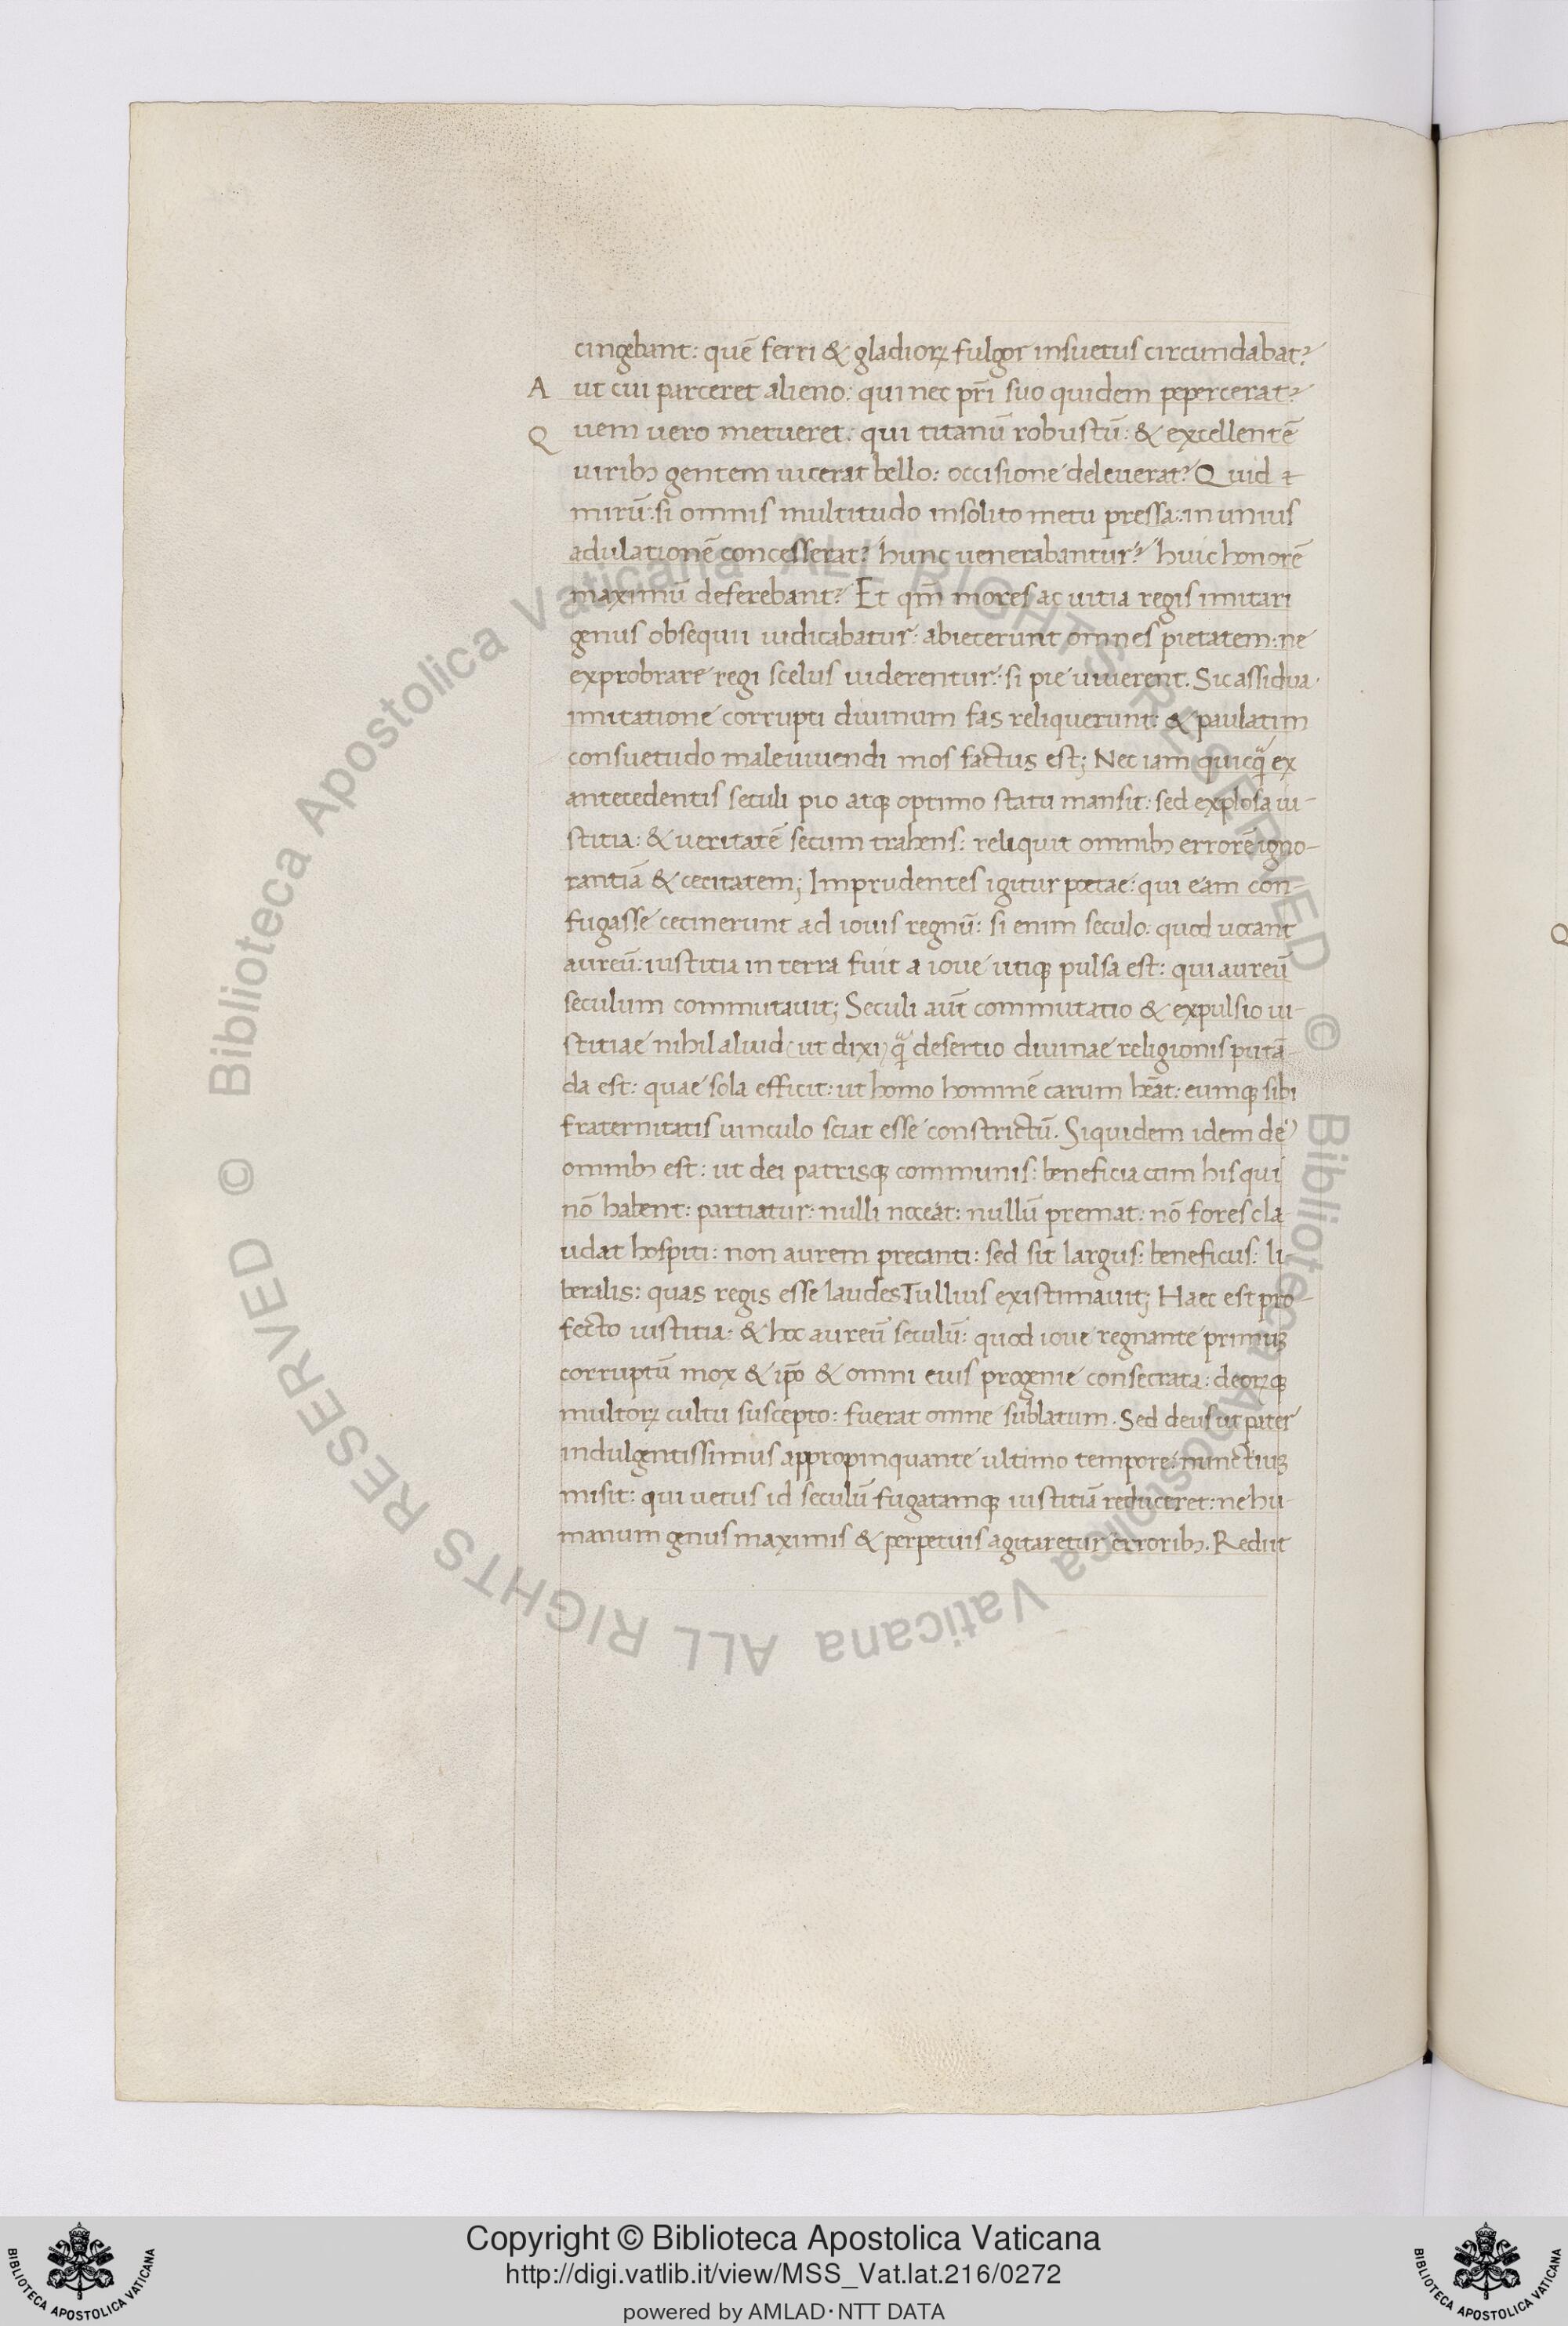 cingebant: quē ferri & gladioꝝ fulgor insuetus circundabat?
A ut cui parceret alieno: qui nec pr̄i suo quidem pepercerat?
Q uem uero metueret: qui titanū robustū: & excellentē
uiribꝫ gentem uicerat bello: occisione deleuerat? Quid ⁊
mirū: si omnis multitudo insolito metu pressa: in unius
adulationē concesserat? hunc uenerabantur? huic honorē
maximū deferebant? Et qm̄ mores ac uitia regis imitari
genus obsequii iudicabatur: abiecerunt omnes pietatem: ne
exprobrare regi scelus uiderentur: si pie uiuerent. Sic assidua
imitatione corrupti diuinum fas reliquerunt: & paulatim
consuetudo male uiuendi mos factus est; Nec iam quicq̃ ex
antecedentis seculi pio atqꝫ optimo statu mansit: sed explosa iu-
stitia: & ueritatē secum trahens: reliquit omnibꝫ errorē igno-
rantiā & cecitatem; Imprudentes igitur poetae: qui eam con-
fugasse cecinerunt ad iouis regnū: si enim seculo: quod uocant
aureū: iustitia in terra fuit a ioue utiqꝫ pulsa est: qui aureū
seculum commutauit; Seculi aūt commutatio & expulsio iu-
stitiae nihil aliud (ut dixi) q̃ desertio diuinae religionis putā-
da est: quae sola efficit: ut homo hominē carum hēat: eumqꝫ sibi
fraternitatis uinculo sciat esse constrictū. Siquidem idem de
omnibꝫ est: ut dei patrisqꝫ communis: beneficia cum his qui
nō habent: partiatur: nulli noceat: nullū premat: nō fores cla-
udat hospiti: non aurem precanti: sed sit largus: beneficus: li
beralis: quas regis esse laudes Tullius existimauit; Haec est pro-
fecto iustitia: & hoc aureū seculū: quod ioue regnante primuꝫ
corruptū mox & ip̄o & omni eius progenie consecrata: deoꝝqꝫ
multoꝝ cultu suscepto: fuerat omne sublatum. Sed deus ut pater
indulgentissimus appropinquante ultimo tempore: nunctiuꝫ
misit: qui uetus id seculū fugatamqꝫ iustitiā reduceret: ne hu-
manum genus maximis & perpetuis agitaretur erroribꝫ. Rediit
Q
© Biblioteca Apostolica Vaticana ALL RIGHTS RESERVED © Biblioteca Apostolica Vaticana ALL RIGHTS RESERVED
Copyright © Biblioteca Apostolica Vaticana
http://digi.vatlib.it/view/MSS_Vat.lat.216/0272
powered by AMLAD·NTT DATA
BIBLIOTECA APOSTOLICA VATICANA
BIBLIOTECA APOSTOLICA VATICANA